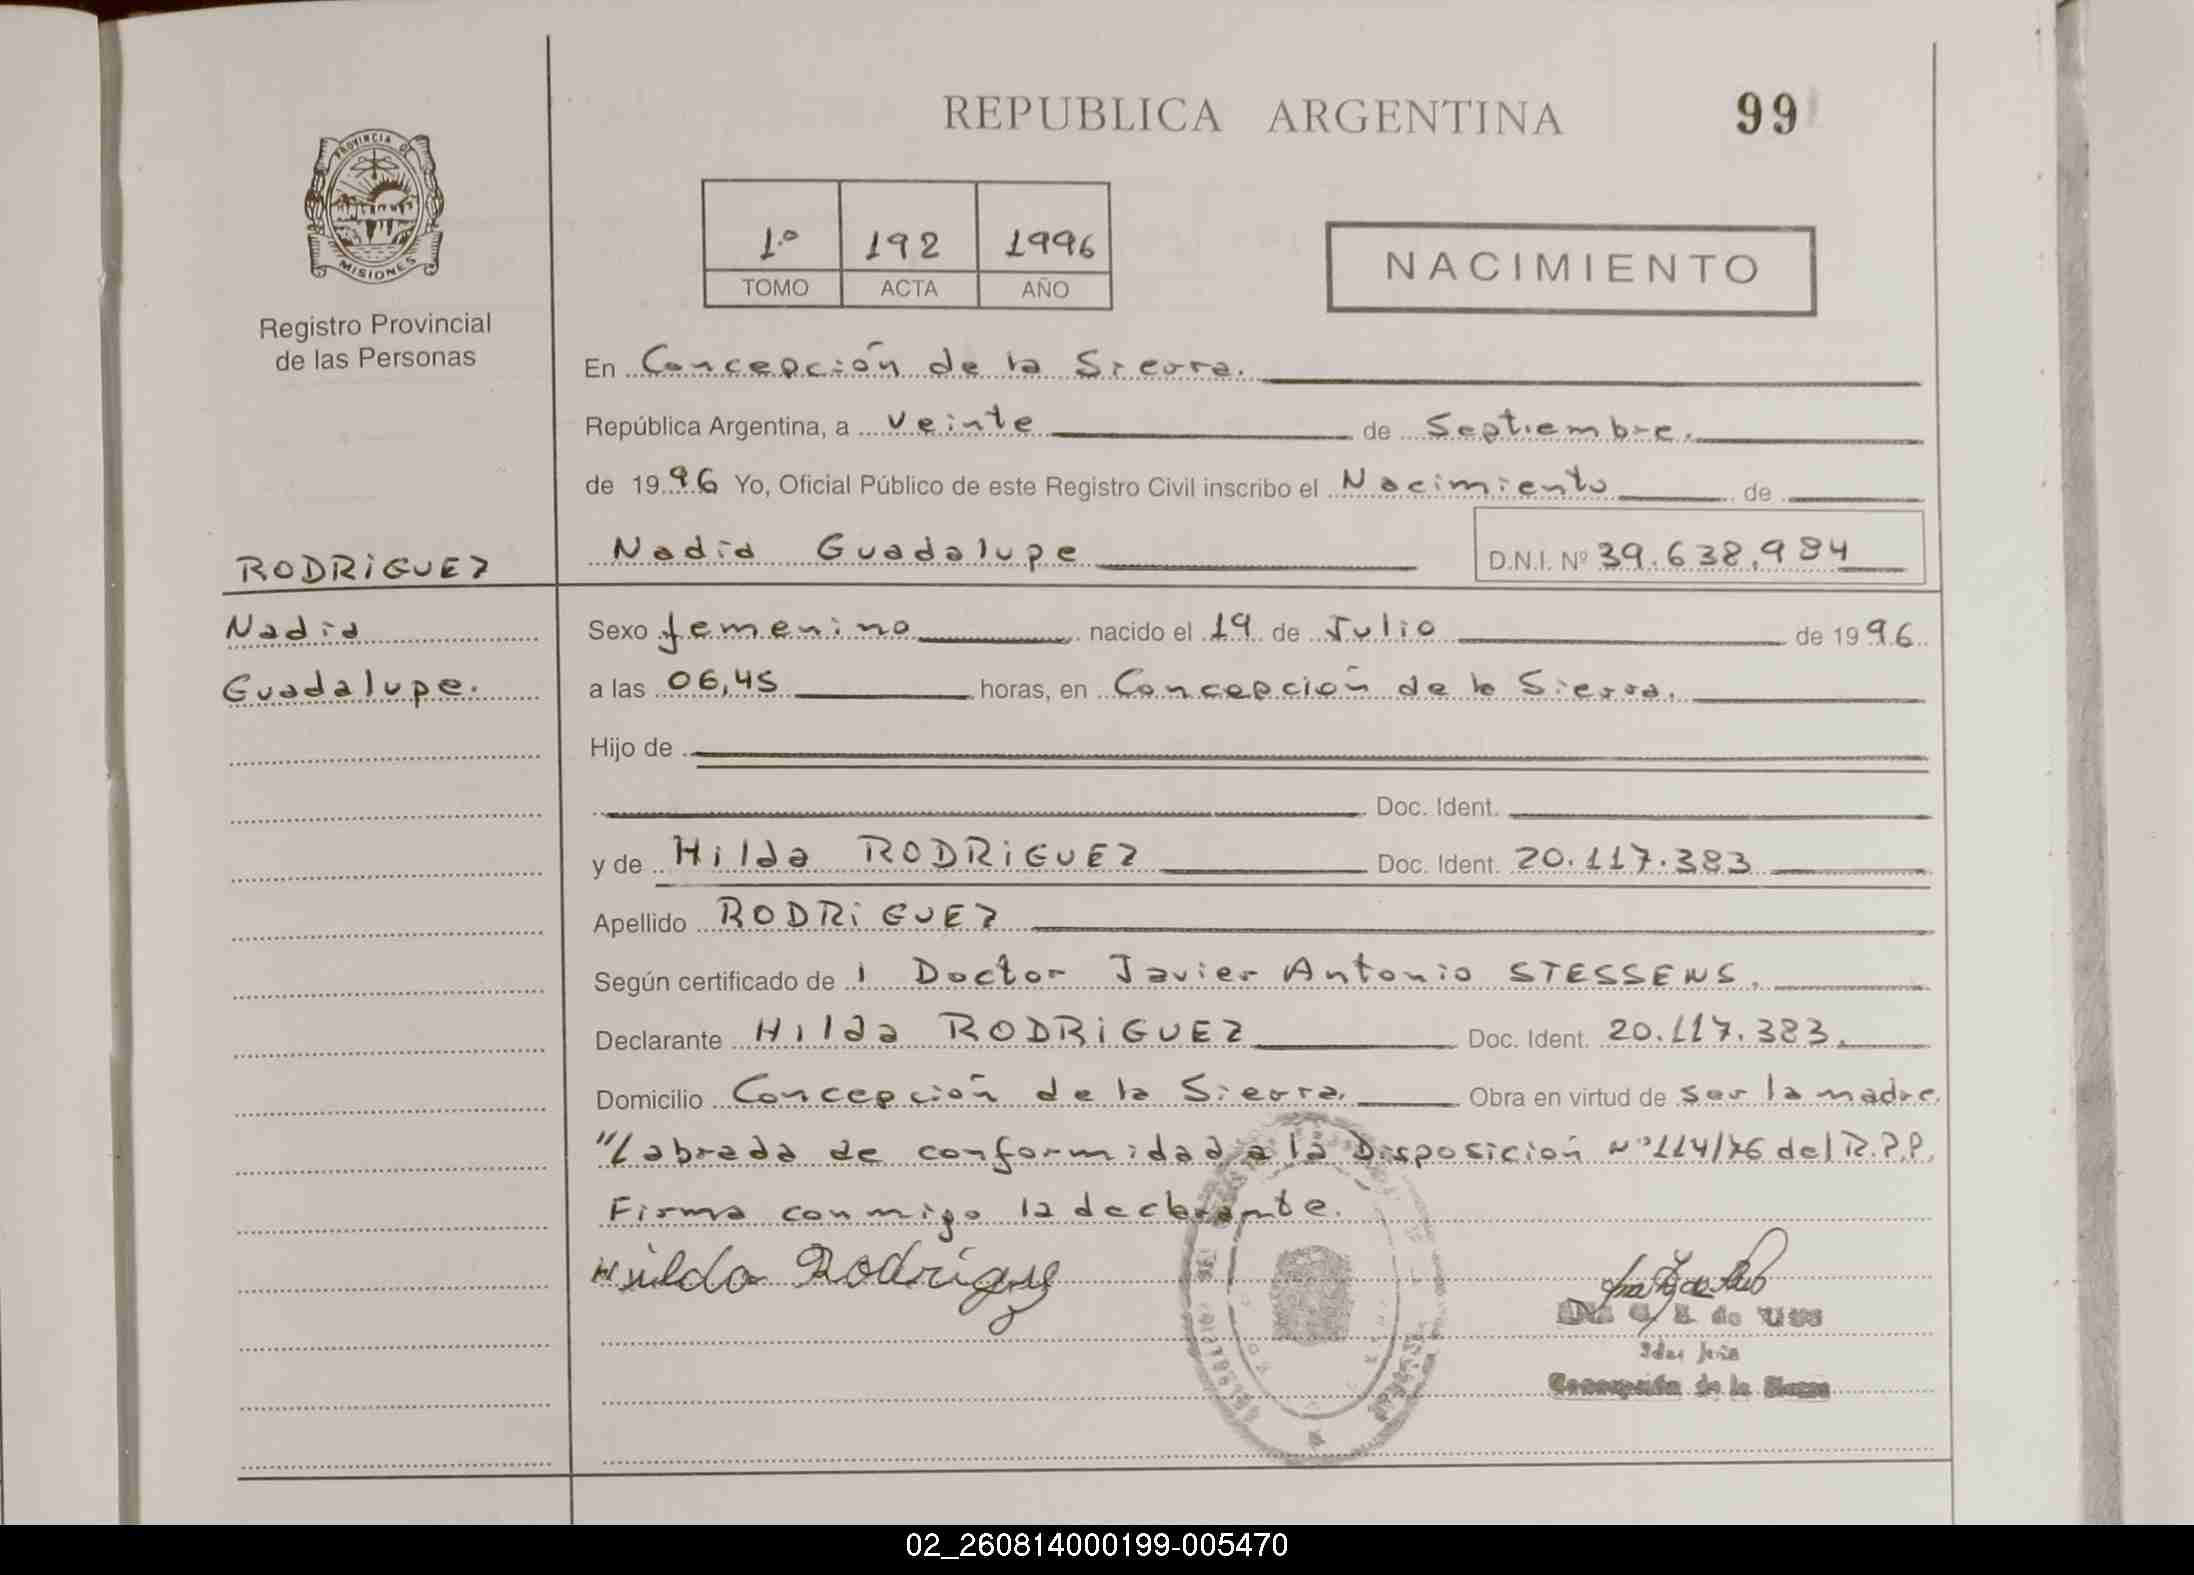 REPUBLICA ARGENTINA
99
PROVINCIA DE
MISIONES
Registro Provincial
de las Personas
1º 192 1996
TOMO ACTA AÑO
NACIMIENTO
En Concepción de la Sierra.
República Argentina, a veinte de Septiembre.
de 1996 Yo, Oficial Público de este Registro Civil inscribo el Nacimiento de
RODRIGUEZ
Nadia Guadalupe D.N.I. Nº 39.638.984
Nadia
Guadalupe.
Sexo femenino nacido el 19 de Julio de 1996
a las 06,45 horas, en Concepción de la Sierra.
Hijo de
Doc. Ident.
y de Hilda RODRIGUEZ Doc. Ident. 20.117.383
Apellido RODRIGUEZ
Según certificado de l Doctor Javier Antonio STESSENS.
Declarante Hilda RODRIGUEZ Doc. Ident. 20.117.383.
Domicilio Concepción de la Sierra. Obra en virtud de ser la madre.
"Labrada de conformidad a la Disposición Nº 114/76 del R.P.P.
Firma conmigo la declarante.
Hilda Rodriguez
Concepción de la Sierra
02_260814000199-005470